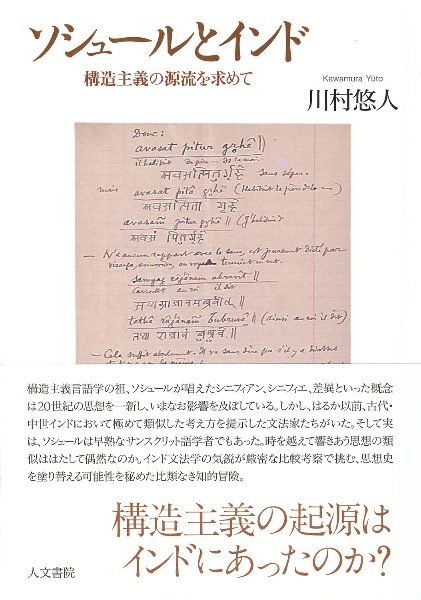 ソシュールとインド
構造主義の源流を求めて
Kawamura Yūto
川村悠人
Donc:
avasat pitur gṛhê ||
il habitait du père - de la mai.
अवसत्पितुर्गृहे sans sépar.
mais avasat pitâ gṛhê (Habitait le père de la —)
अवसत्पिता गृहे
avasam pitur gṛhê || (j'habitais)
अवसं पितुर्गृहे
N'a aucun rapport avec le sens, est purement dicté par
samyag râjânam abravît ||
correct^t au roi il dit
सम्यग्राजानमब्रवीत् ||
tathâ râjânam bubruvê || (ainsi au roi il dit)
तथा राजानं बुब्रुवे ||
— Cela suffit absolument. Il va sans dire que s'il y a
構造主義言語学の祖、ソシュールが唱えたシニフィアン、シニフィエ、差異といった概念
は20世紀の思想を一新し、いまなお影響を及ぼしている。しかし、はるか以前、古代・
中世インドにおいて極めて類似した考え方を提示した文法家たちがいた。そして実
は、ソシュールは早熟なサンスクリット語学者でもあった。時を越えて響きあう思想の類
似ははたして偶然なのか。インド文法学の気鋭が厳密な比較考察で挑む、思想史
を塗り替える可能性を秘めた比類なき知的冒険。
構造主義の起源は
インドにあったのか?
人文書院